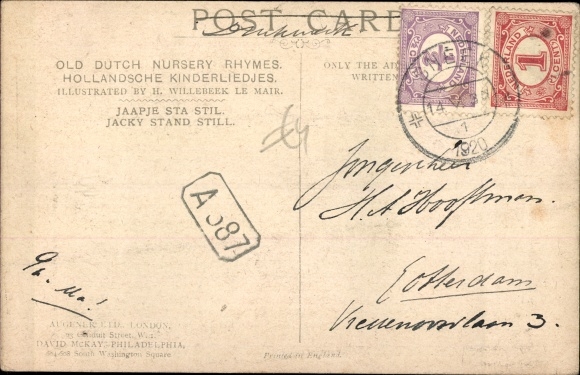 POST CARD
Drukwerk
OLD DUTCH NURSERY RHYMES.
HOLLANDSCHE KINDERLIEDJES.
ILLUSTRATED BY H. WILLEBEEK LE MAIR.
JAAPJE STA STIL.
JACKY STAND STILL.
ONLY THE
WRITTEN
NEDERLAND
1
CENT
1920
A 587
Jongenheer
H. A. Hooftman.
Rotterdam
3.
AUGENER LTD. LONDON,
Conduit Street, W.
DAVID McKAY, PHILADELPHIA,
604-608 South Washington Square
Printed in England.